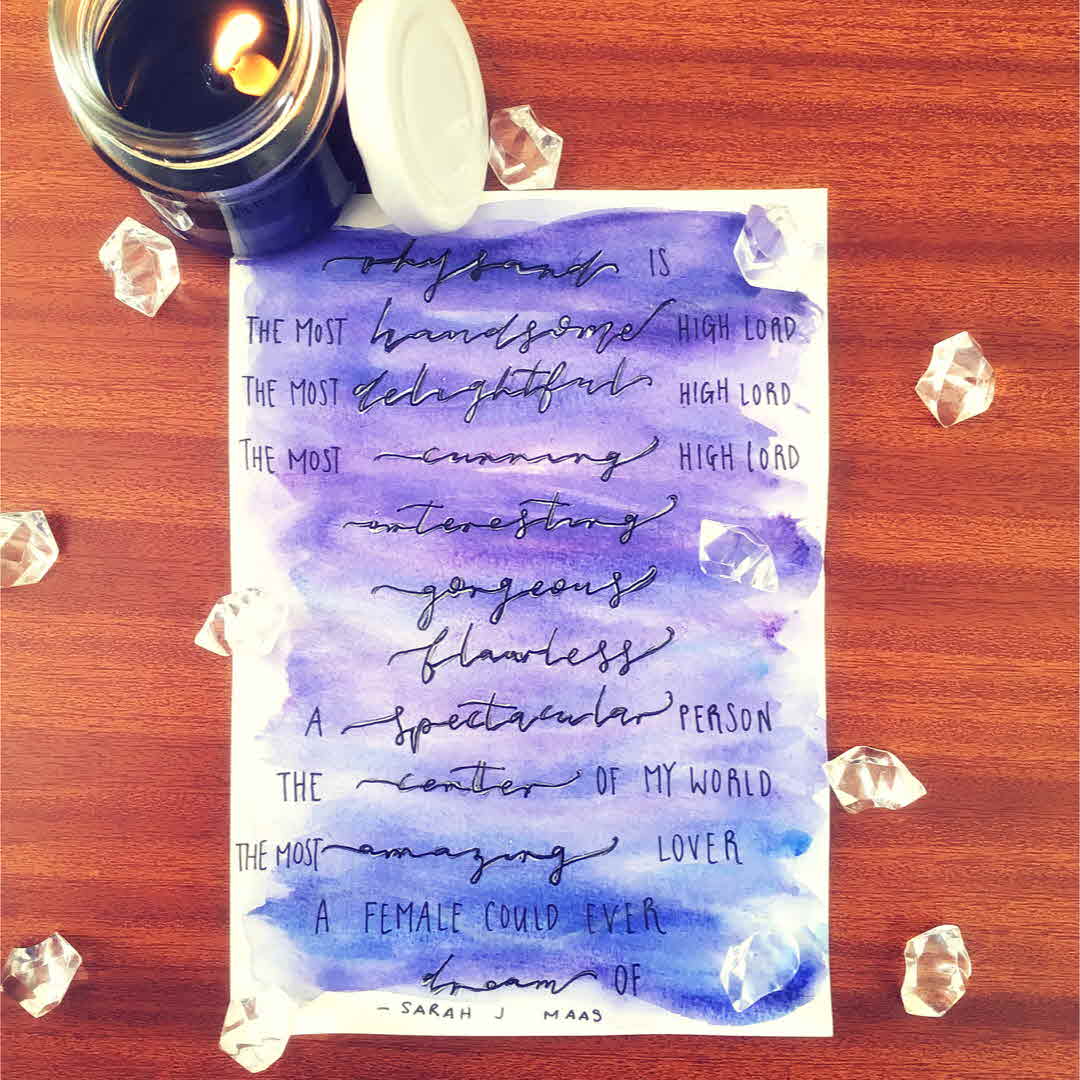 rhysand IS
THE MOST handsome HIGH LORD
THE MOST delightful HIGH LORD
THE MOST cunning HIGH LORD
interesting
gorgeous
flawless
A spectacular PERSON
THE center OF MY WORLD
THE MOST amazing LOVER
A FEMALE COULD EVER
dream OF
- SARAH J MAAS